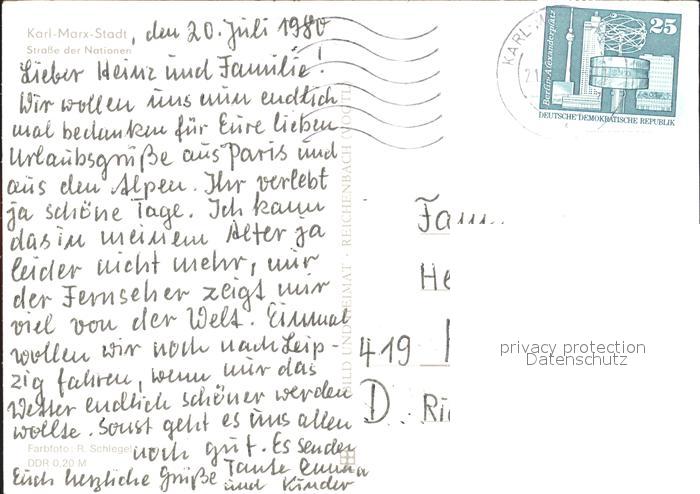 Karl-Marx-Stadt, den 20. Juli 1980
Straße der Nationen
Lieber Heinz und Familie!
Wir wollen uns nun endlich
mal bedanken für Eure lieben
Urlaubsgrüße aus Paris und
aus den Alpen. Ihr verlebt
ja schöne Tage. Ich kann
das in meinem Alter ja
leider nicht mehr, mir
der Fernseher zeigt mir
viel von der Welt. Einmal
wollen wir noch nach Leip-
zig fahren, wenn nur das
Wetter endlich schöner werden
wollte. Sonst geht es uns allen
noch gut. Es senden
Euch herzliche Grüße Tante
und Kinder
Farbfoto: R. Schlegel
DDR 0,20 M
BILD UND HEIMAT · REICHENBACH (VOGTL)
KARL-M
25
Berlin-Alexanderplatz
DEUTSCHE DEMOKRATISCHE REPUBLIK
Fam
He
419
D. Ri
privacy protection
Datenschutz